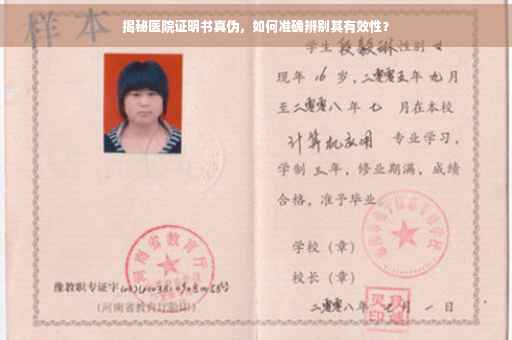 揭秘医院证明书真伪，如何准确辨别其有效性？
样本
学生段毅琳性别女
现年16岁，二零零五年九月
至二零零八年七月在本校
计算机应用 专业学习，
学制三年，修业期满，成绩
合格，准予毕业。
学校（章）
校长（章）
二零零八年七月一日
河南省教育厅
豫教职专证字
（河南省教育厅验印）